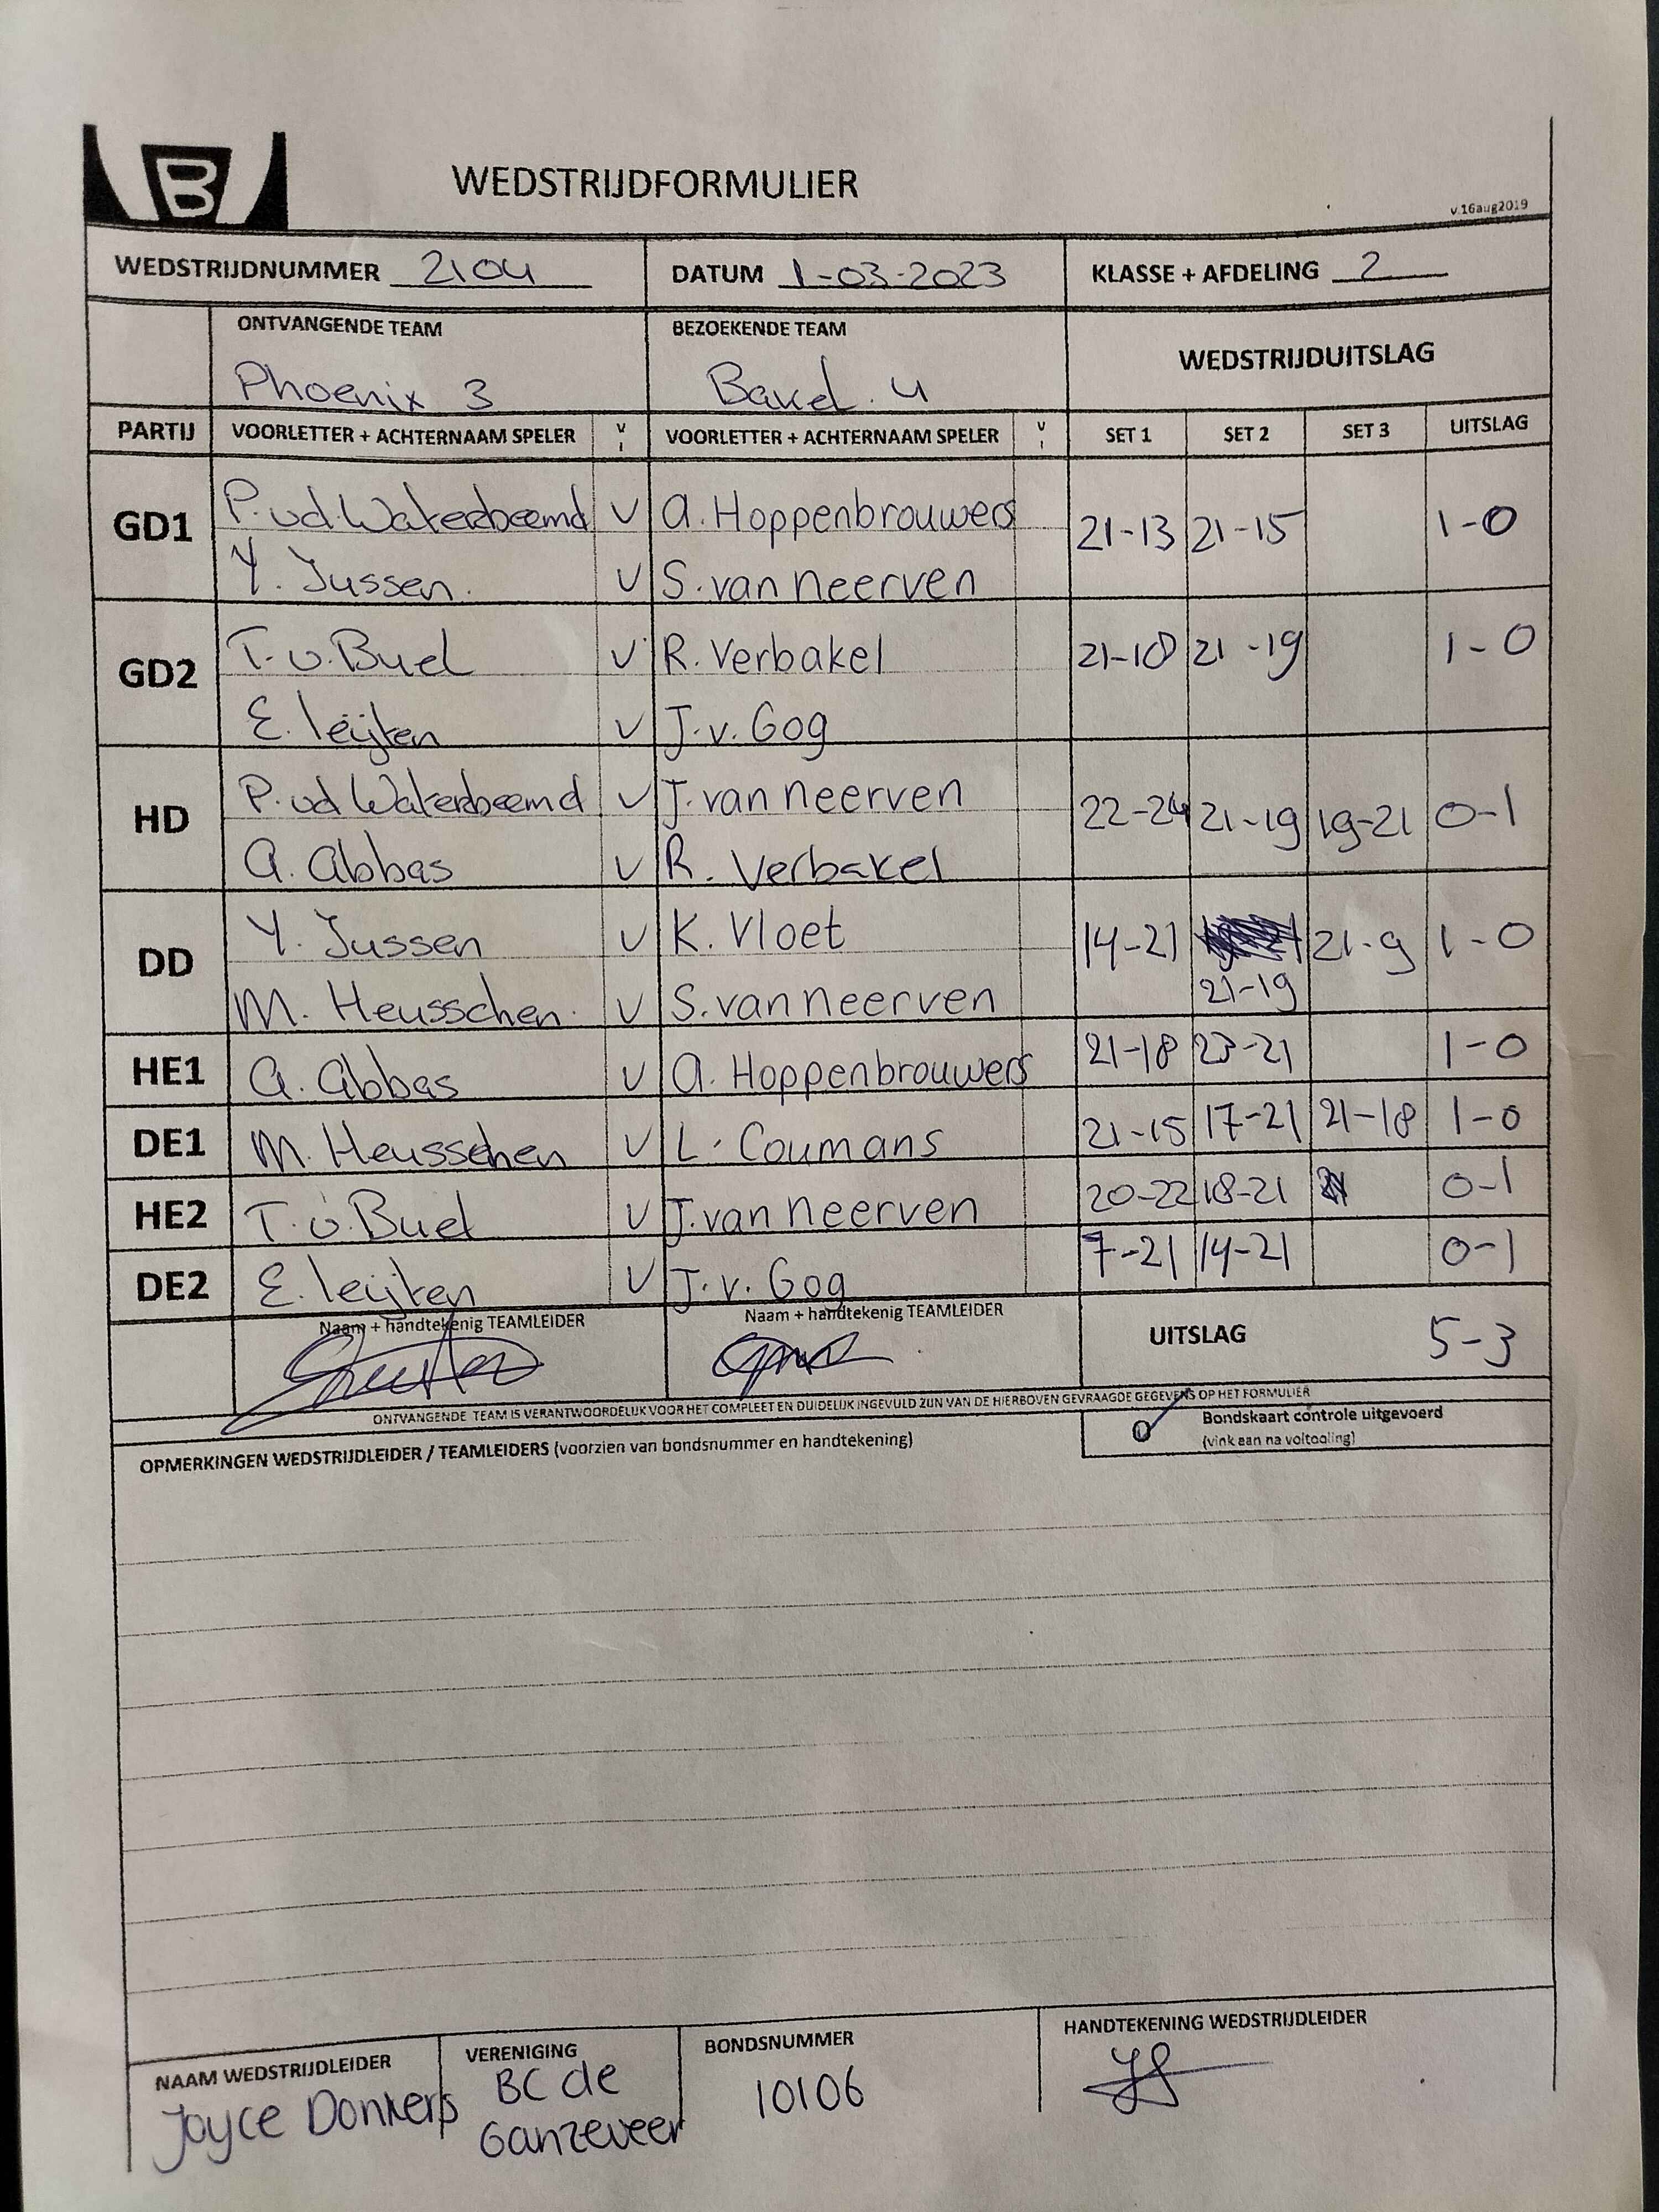 B
WEDSTRIJDFORMULIER
v.16aug2019
WEDSTRIJDNUMMER 2104 DATUM 1-03-2023 KLASSE + AFDELING 2
ONTVANGENDE TEAM BEZOEKENDE TEAM WEDSTRIJDUITSLAG
Phoenix 3 Bakel 4
PARTIJ VOORLETTER + ACHTERNAAM SPELER V VOORLETTER + ACHTERNAAM SPELER V SET 1 SET 2 SET 3 UITSLAG
GD1 P. vd. Waterbeemd V A. Hoppenbrouwers 21-13 21-15 1-0
Y. Jussen. V S. van neerven
GD2 T. v. Buel V R. Verbakel 21-18 21-19 1-0
E. leijten V J. v. Gog
HD P. vd Waterbeemd V J. van neerven 22-24 21-19 19-21 0-1
A. Abbas V R. Verbakel
DD Y. Jussen V K. Vloet 14-21 21-9 1-0
21-19
M. Heusschen. V S. van neerven
HE1 A. Abbas V A. Hoppenbrouwers 21-18 23-21 1-0
DE1 M. Heusschen V L. Coumans 21-15 17-21 21-18 1-0
HE2 T. v. Buel V J. van neerven 20-22 18-21 0-1
DE2 E. leijten V J. v. Gog 7-21 14-21 0-1
Naam + handtekenig TEAMLEIDER Naam + handtekenig TEAMLEIDER UITSLAG 5-3
ONTVANGENDE TEAM IS VERANTWOORDELIJK VOOR HET COMPLEET EN DUIDELIJK INGEVULD ZIJN VAN DE HIERBOVEN GEVRAAGDE GEGEVENS OP HET FORMULIER
Bondskaart controle uitgevoerd
(vink aan na voltooiing)
OPMERKINGEN WEDSTRIJDLEIDER / TEAMLEIDERS (voorzien van bondsnummer en handtekening)
NAAM WEDSTRIJDLEIDER VERENIGING BONDSNUMMER HANDTEKENING WEDSTRIJDLEIDER
Joyce Donkers BC de 10106
Ganzeveer